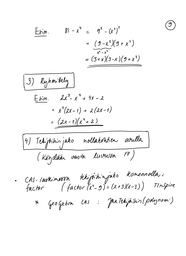 9
Esim. 81 - x⁴ = 9² - (x²)²
= (9 - x²)(9 + x²)
= (3+x)(3-x)(9+x²)
3) Ryhmittely
Esim. 2x³ - x² + 4x - 2
= x²(2x-1) + 2(2x-1)
= (2x-1)(x²+2)
4) Tekijöihinjako nollakohtien avulla
(käydään vasta luvussa
CAS-laskimessa tekijöihinjako komennolla:
factor (factor(x²-9) = (x+3)(x-3)) TInspire
* Geogebra CAS: JaaTekijöihin(polynomi)